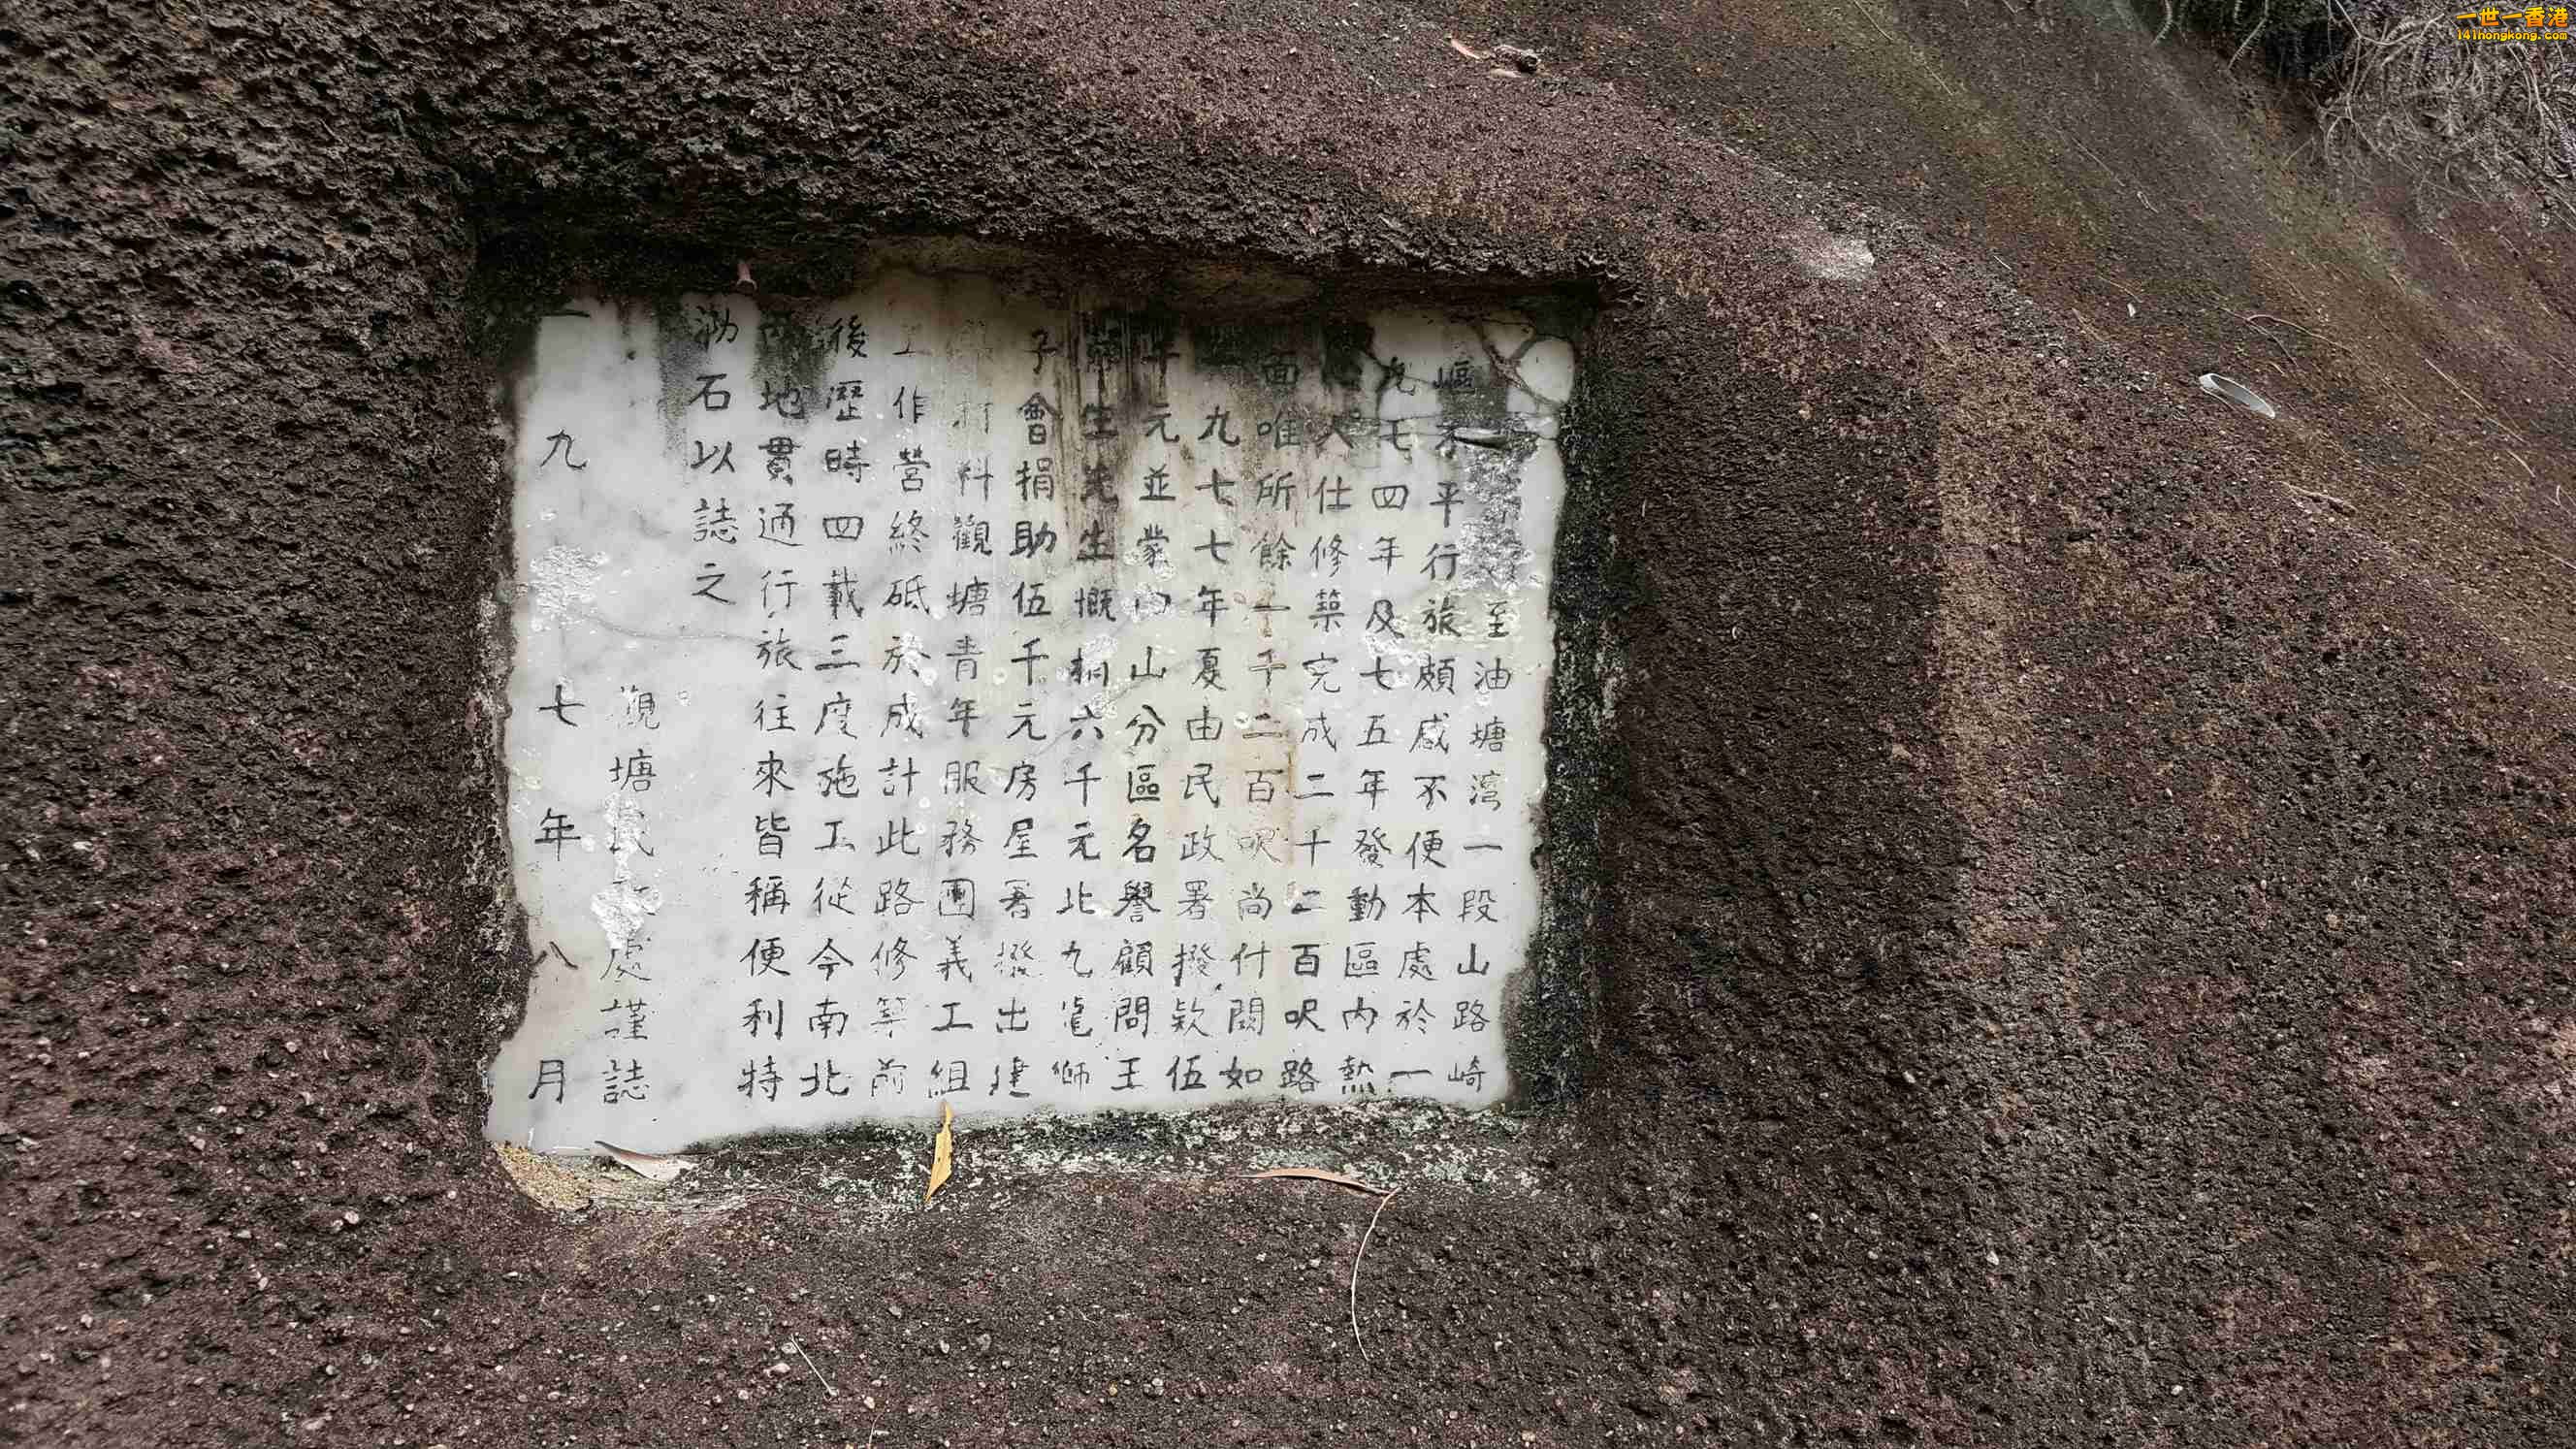 至油塘湾一段山路崎
嶇不平行旅頗感不便本處於一
九七四年及七五年發動區内熱
人仕修築完成二千二百呎路
面唯所餘一千二百呎尚付闕如
九七七年夏由民政署撥欵伍
千元並蒙山分區名譽顧問王
生先生慨捐六千元北九龍獅
子會捐助伍千元房屋署撥出建
材料觀塘青年服務團義工組
工作營終砥於成計此路修築前
後歷時四載三度施工從今南北
兩地貫通行旅往來皆稱便利特
泐石以誌之
觀塘民處謹誌
一九七年八月
一世一香港
141hongkong.com